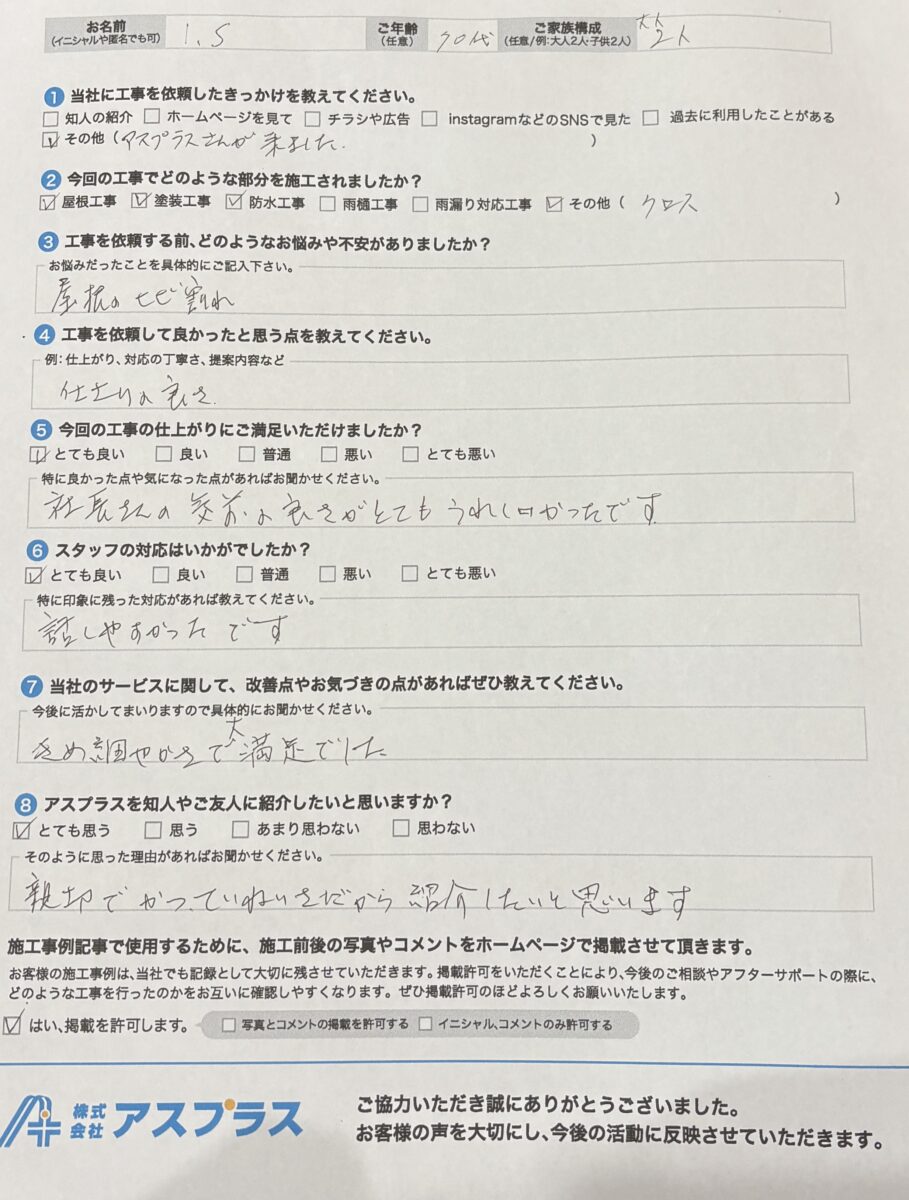 お名前
(イニシャルや匿名でも可)
I.S
ご年齢
(任意)
70代
ご家族構成
(任意/例:大人2人・子供2人)
大人
2人
1 当社に工事を依頼したきっかけを教えてください。
知人の紹介 ホームページを見て チラシや広告 instagramなどのSNSで見た 過去に利用したことがある
その他(アスプラスさんが来ました. )
2 今回の工事でどのような部分を施工されましたか?
屋根工事 塗装工事 防水工事 雨樋工事 雨漏り対応工事 その他( クロス )
3 工事を依頼する前、どのようなお悩みや不安がありましたか?
お悩みだったことを具体的にご記入下さい。
屋根のヒビ割れ
4 工事を依頼して良かったと思う点を教えてください。
例:仕上がり、対応の丁寧さ、提案内容など
仕上りの良さ
5 今回の工事の仕上がりにご満足いただけましたか?
とても良い 良い 普通 悪い とても悪い
特に良かった点や気になった点があればお聞かせください。
社長さんの の良さがとてもうれしかったです
6 スタッフの対応はいかがでしたか?
とても良い 良い 普通 悪い とても悪い
特に印象に残った対応があれば教えてください。
話しやすかったです
7 当社のサービスに関して、改善点やお気づきの点があればぜひ教えてください。
今後に活かしてまいりますので具体的にお聞かせください。
きめ細やかさで大満足でした
8 アスプラスを知人やご友人に紹介したいと思いますか?
とても思う 思う あまり思わない 思わない
そのように思った理由があればお聞かせください。
親切でかつ、ていねいさだから紹介したいと思います
施工事例記事で使用するために、施工前後の写真やコメントをホームページで掲載させて頂きます。
お客様の施工事例は、当社でも記録として大切に残させていただきます。掲載許可をいただくことにより、今後のご相談やアフターサポートの際に、
どのような工事を行ったのかをお互いに確認しやすくなります。ぜひ掲載許可のほどよろしくお願いいたします。
はい、掲載を許可します。 写真とコメントの掲載を許可する イニシャル、コメントのみ許可する
株式会社 アスプラス
ご協力いただき誠にありがとうございました。
お客様の声を大切にし、今後の活動に反映させていただきます。